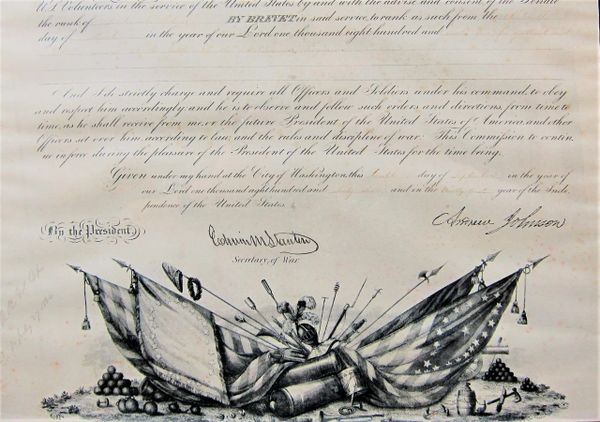 U.S. Volunteers in the service of the United States by and with the advise and consent of the Senate
the rank of
BY BREVET, in said service, to rank as such from the
day of in the year of our Lord one thousand eight hundred and
And I do strictly charge and require all Officers and Soldiers under his command to obey
and respect him accordingly: and he is to observe and follow such orders and directions, from time to
time, as he shall receive from me, or the future President of the United States of America, and other
Officers set over him according to law, and the rules and discipline of war. This Commission to contin-
ue in force during the pleasure of the President of the United States for the time being.
Given under my hand at the City of Washington, this day of in the year of
our Lord one thousand eight hundred and and in the year of the Inde-
pendence of the United States.
By the President,
Andrew Johnson
Edwin M Stanton
Secretary of War.